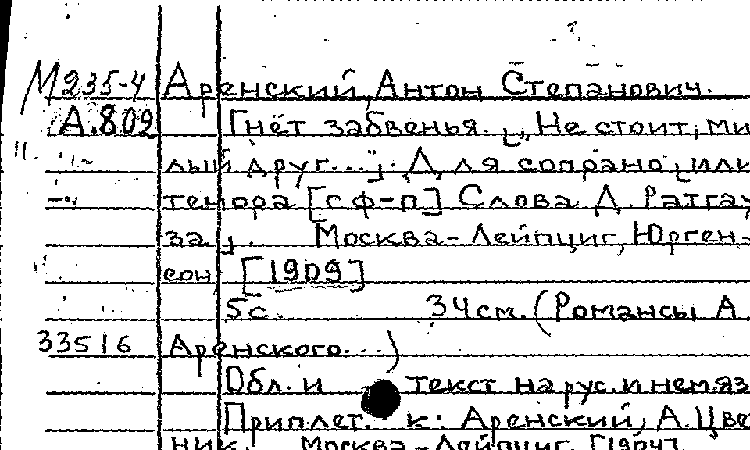 М235-4 Аренский, Антон Степанович.
А.809 Гнёт забвенья. („Не стоит, ми
лый друг..."). Для сопрано или
тенора [с ф-п] Слова Д. Ратгау
за. Москва-Лейпциг, Юрген-
сон [1909]
5с. 34см. (Романсы А
33516 Аренского...)
Обл. и текст на рус. и нем. яз
Приплет. к: Аренский, А. Цве
ник. Москва-Лейпциг, [1904].